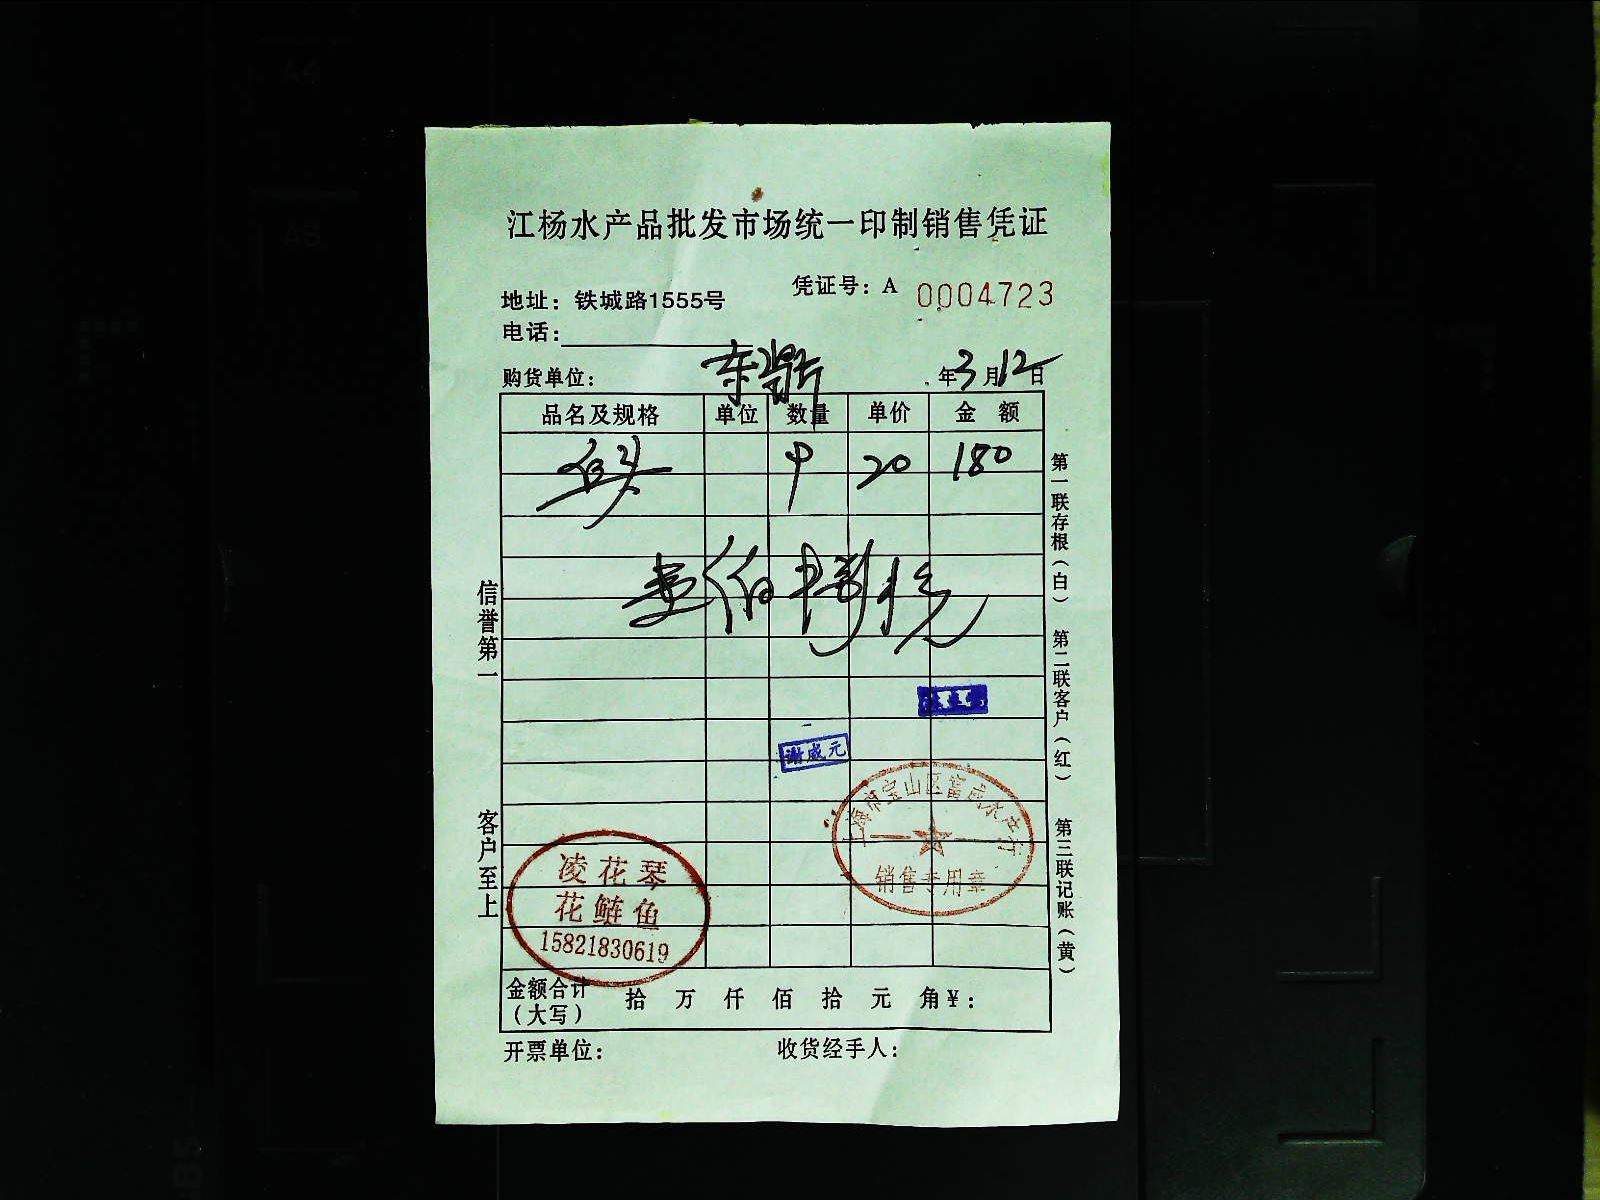 江杨水产品批发市场统一印制销售凭证
凭证号：A 0004723
地址：铁城路1555号
电话：
购货单位： 东 年3月12日
品名及规格 单位 数量 单价 金额
鱼头 9 20 180
壹佰捌拾元
信誉第一
客户至上
第一联存根（白） 第二联客户（红） 第三联记账（黄）
谢成元
上海市宝山区富成水产行
销售专用章
凌花琴
花鲢鱼
15821830619
金额合计（大写） 拾 万 仟 佰 拾 元 角￥：
开票单位： 收货经手人：